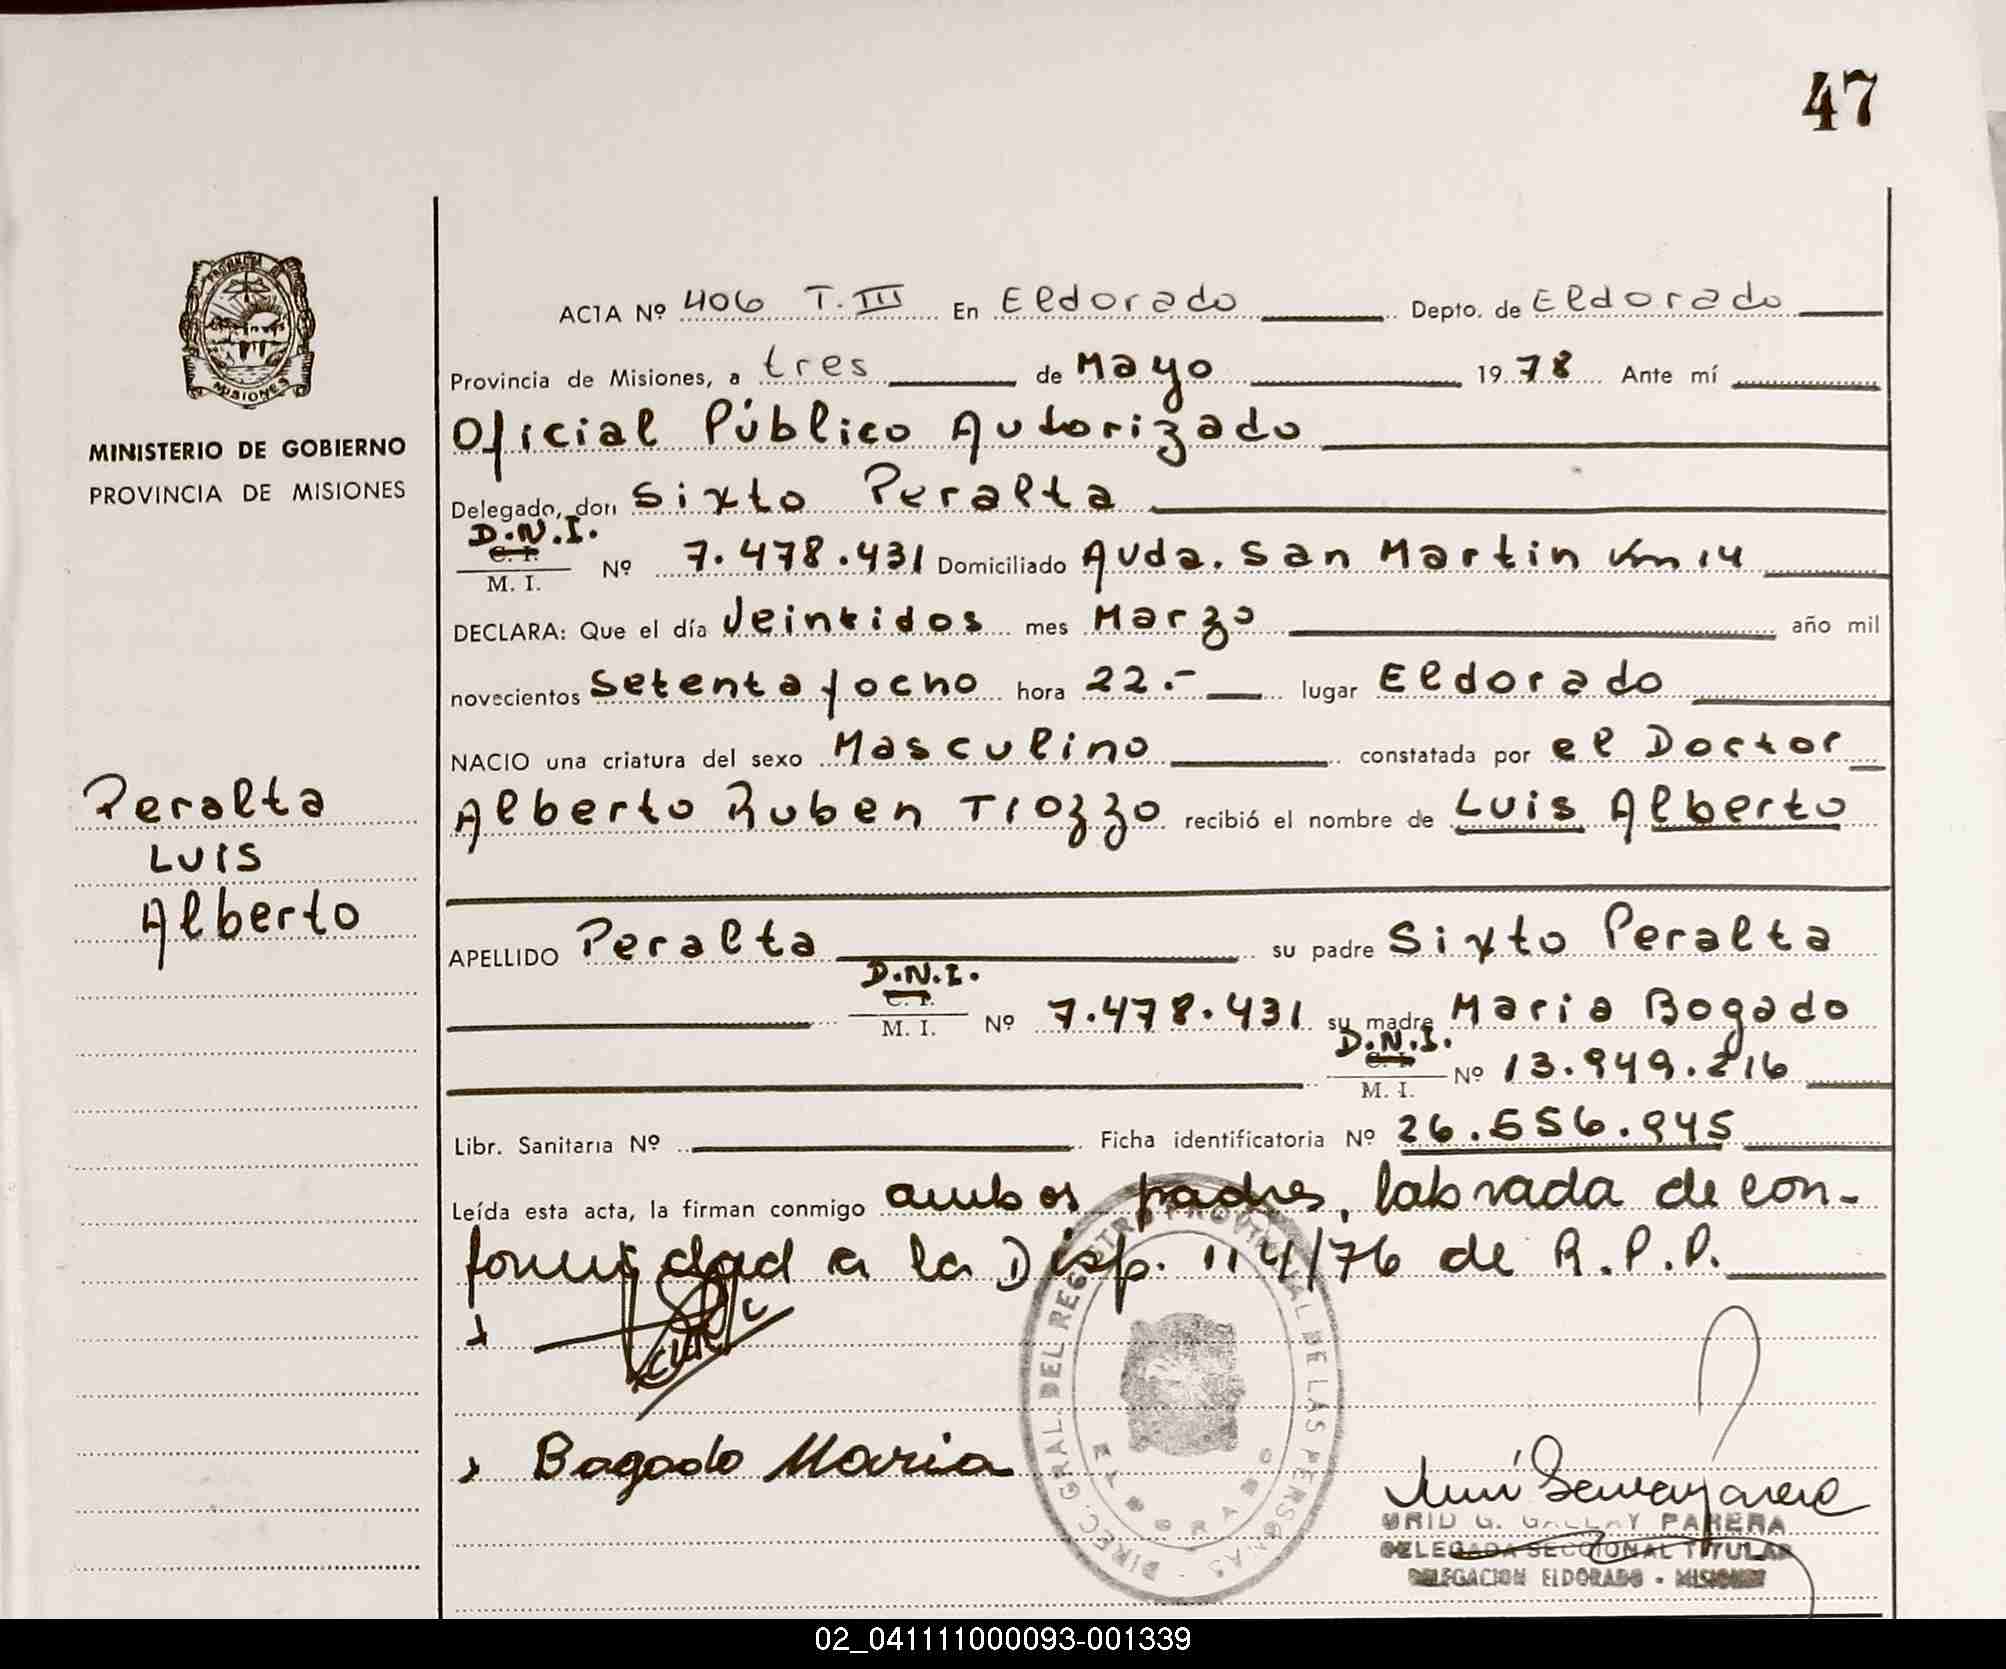 47
ACTA Nº 406 T. III En Eldorado Depto. de Eldorado
Provincia de Misiones, a tres de Mayo 1978 Ante mí
Oficial Público Autorizado
Delegado, don Sixto Peralta
D.N.I.
C. I.
M. I. Nº 7.478.431 Domiciliado Avda. San Martin Km 14
DECLARA: Que el día Veintidos mes Marzo año mil
novecientos setenta y ocho hora 22.- lugar Eldorado
NACIO una criatura del sexo Masculino constatada por el Doctor
Alberto Ruben Tiozzo recibió el nombre de Luis Alberto
APELLIDO Peralta su padre Sixto Peralta
D.N.I.
C. I.
M. I. Nº 7.478.431 su madre Maria Bogado
D.N.I.
C. I.
M. I. Nº 13.949.216
Libr. Sanitaria Nº Ficha identificatoria Nº 26.556.945
Leída esta acta, la firman conmigo ambos padres, labrada de con-
formidad a la Disp. 114/76 de R.P.P.
Bogado Maria
G. GALLAY PARERA
DELEGADA SECCIONAL TITULAR
DELEGACION ELDORADO - MISIONES
DIREC. GRAL. DEL REGISTRO PROVINCIAL DE LAS PERSONAS
ELDORADO
PROVINCIA DE
MISIONES
MINISTERIO DE GOBIERNO
PROVINCIA DE MISIONES
Peralta
Luis
Alberto
02_041111000093-001339